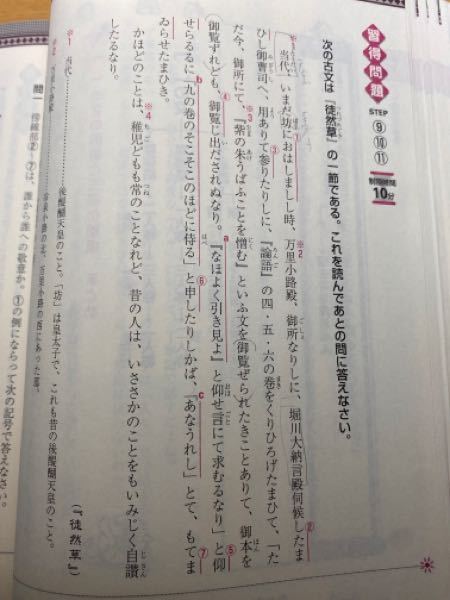 習得問題 STEP ⑨ ⑩ ⑪ 制限時間 10分
次の古文は『徒然草』の一節である。これを読んであとの問に答えなさい。
※1当代、いまだ坊におはしましし時、※2万里小路殿、御所なりしに、堀川大納言殿伺候したま
ひし御曹司へ、用ありて参りたりしに、『論語』の四・五・六の巻をくりひろげたまひて、「た
だ今、御所にて、※3『紫の朱うばふことを憎む』といふ文を御覧ぜられたきことありて、御本を
御覧ずれども、御覧じ出だされぬなり。『なほよく引き見よ』と仰せ言にて求むるなり」と仰
せらるるに、「九の巻のそこそこのほどに侍る」と申したりしかば、「あなうれし」とて、もてま
ゐらせたまひき。
かほどのことは、※4稚児どもも常のことなれど、昔の人は、いささかのことをもいみじく自讃
したるなり。
(『徒然草』)
※1 当代 後醍醐天皇のこと。「坊」は皇太子で、これも昔の後醍醐天皇のこと。
問一 傍線部②〜⑦は、誰から誰への敬意か。①の例にならって次の記号で答えなさい。